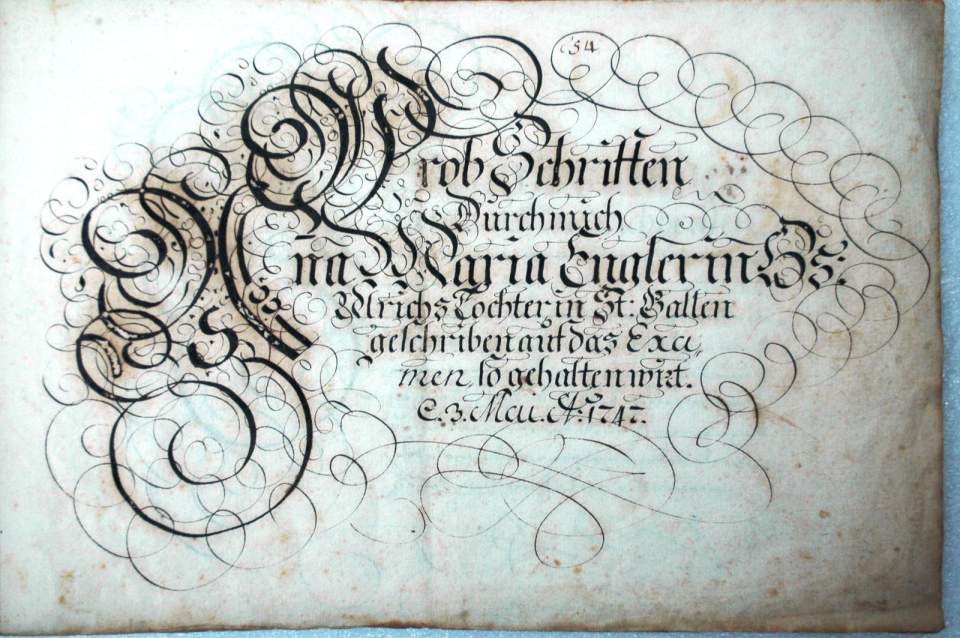 54
Prob Schrifften
Durch mich
Anna Maria Englerin Hs:
Ulrichs Tochter in St: Gallen
geschriben auf das Exa-
men, so gehalten wirt.
3. Meii. A: 1747.